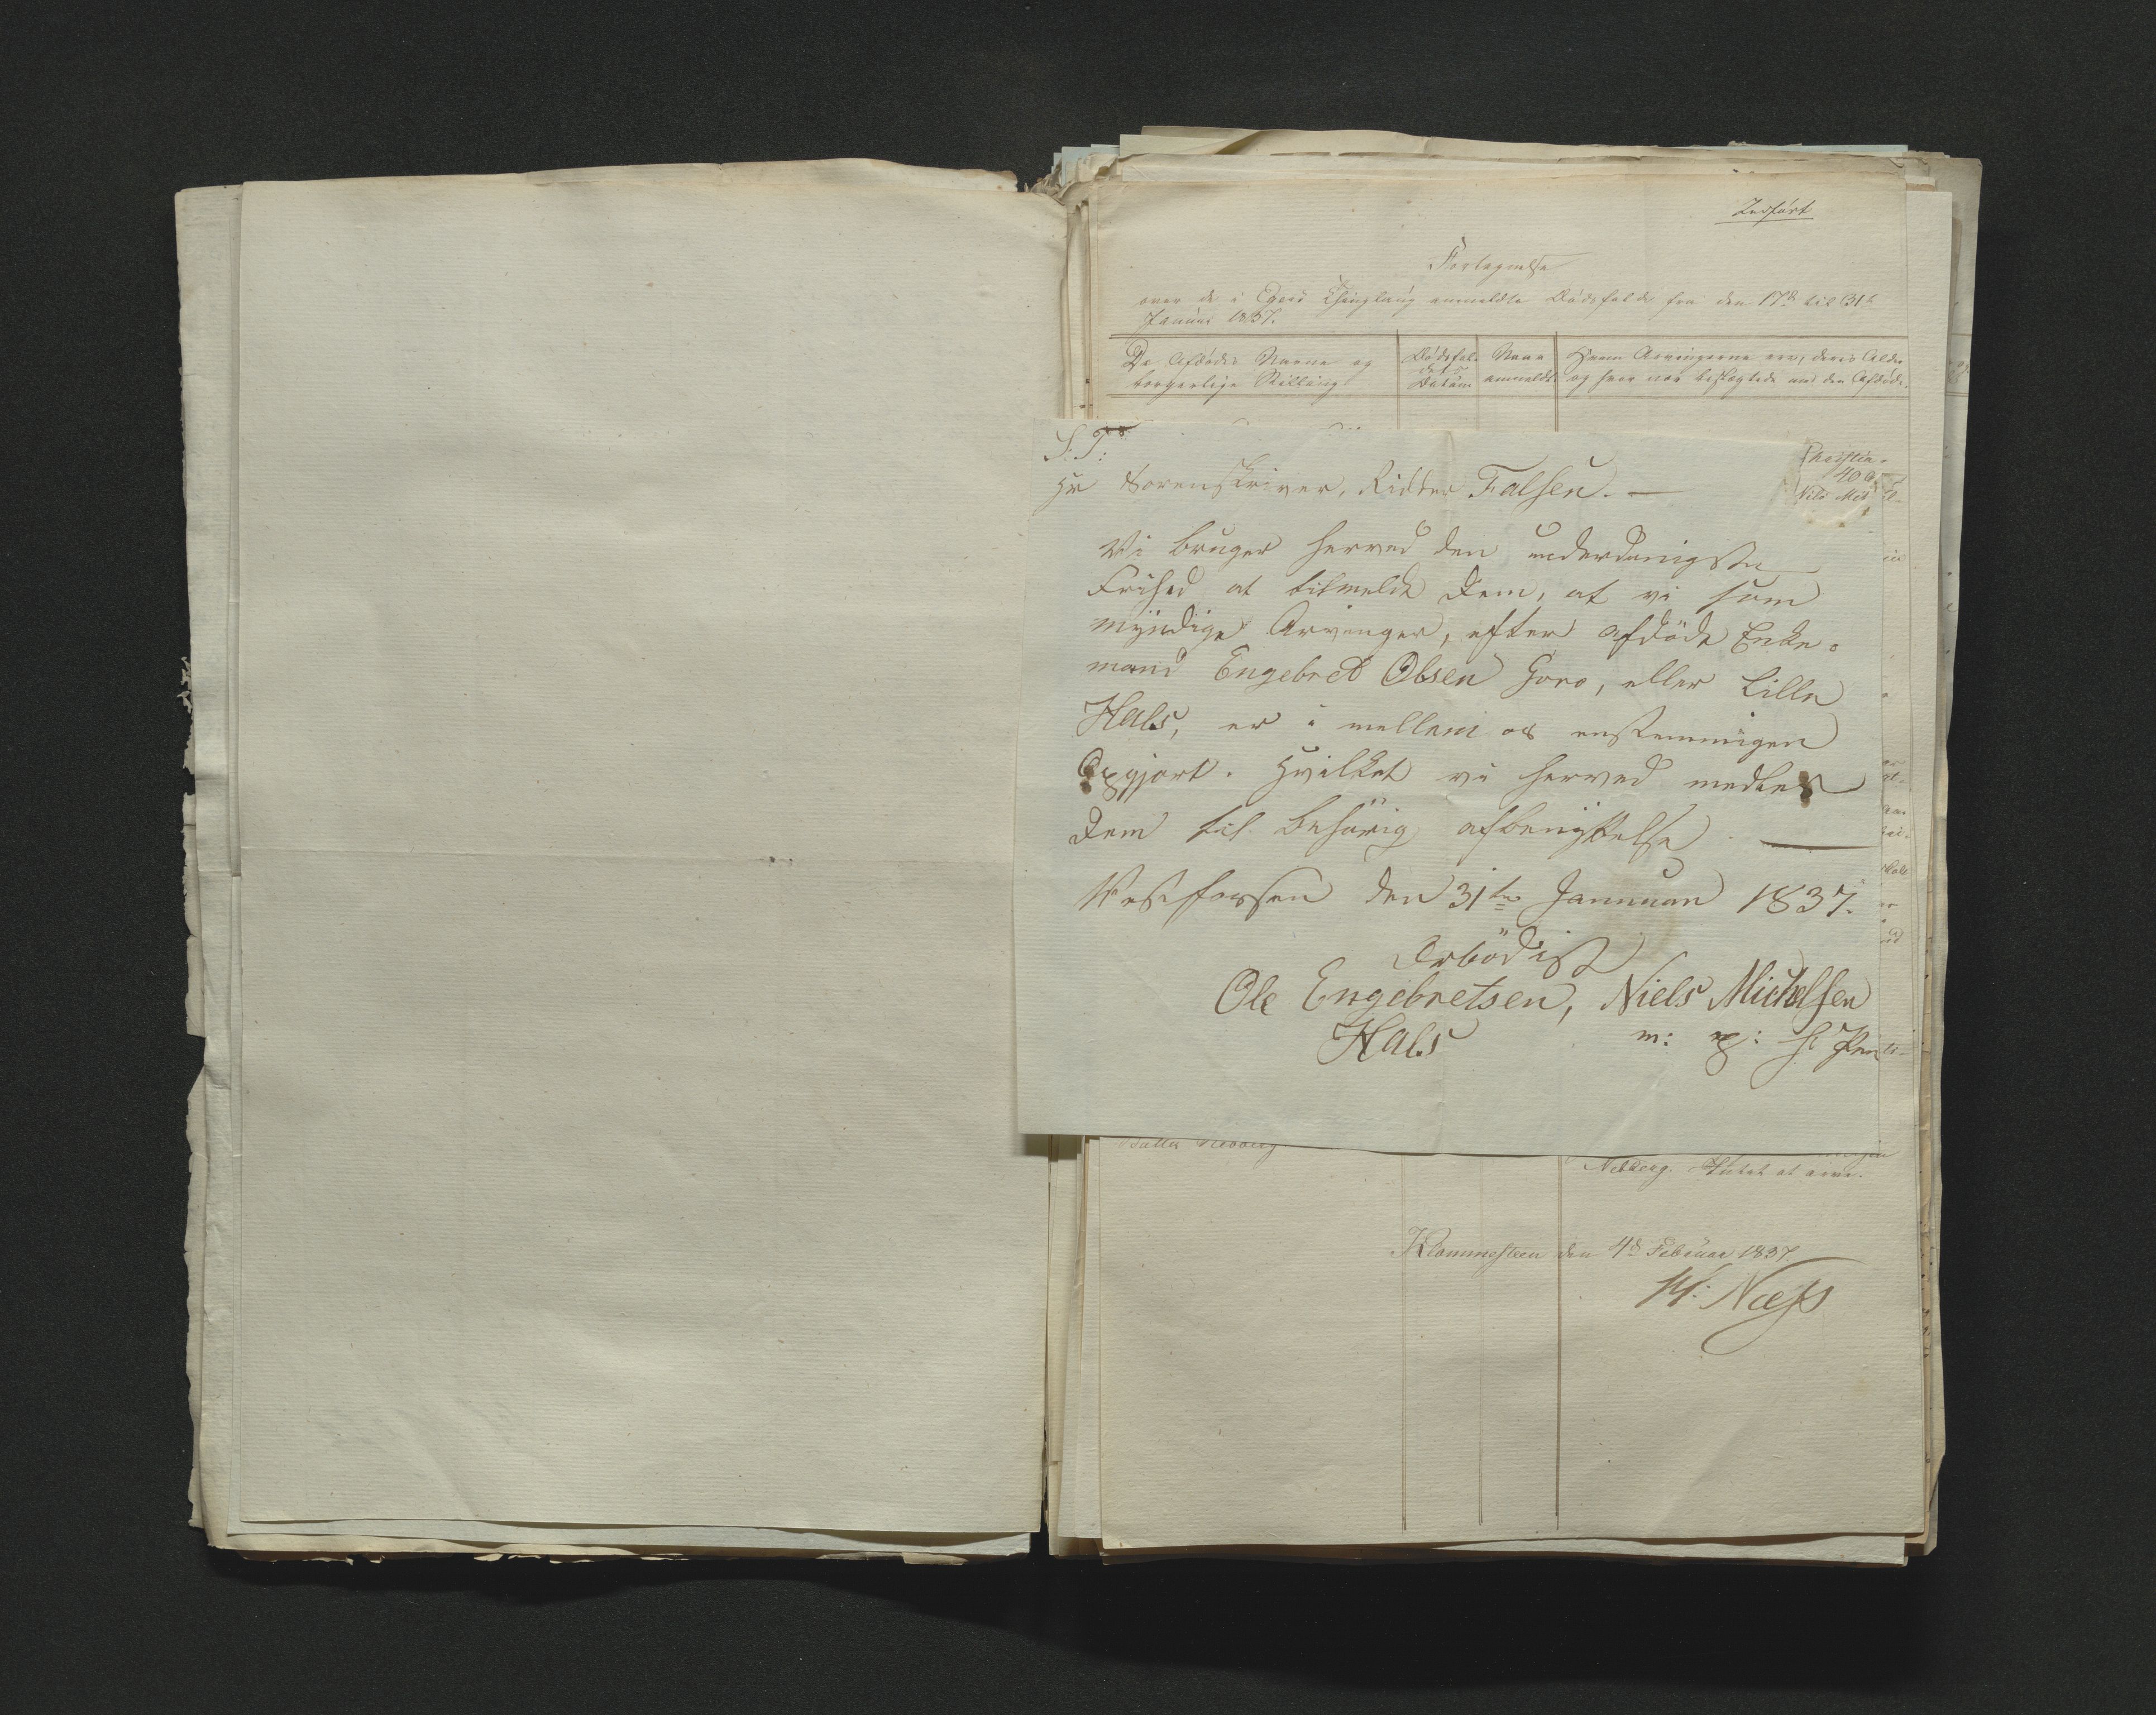 Indført
Fortegnelse
over de i Egers Thinglaug anmeldte Dødsfalde fra den 17de til 31te
Januar 1837.
De Afdødes Navne og
borgerlige Stilling
Dødsfal-
dets
Datum
Naar
anmeldt
Hvem Arvingerne ere, deres Alder
og hvor nær beslægtede med den Afdøde.
S. T:
Hr Sorenskriver, Ridder Falsen. —
Christia-
40
Nils Mic
Vi bruger herved den underdanigste
Frihed at tilmelde Dem, at vi som
myndige Arvinger, efter afdöde Enke-
mand Engebret Olsen Horo, eller Lille
Hals, er i mellem os enstemmigen
Opgjort. Hvilket vi herved medeler
Dem til behörig afbenyttelse. —
Vestfossen den 31te Januar 1837.
Ærbödist
Ole Engebretsen, Niels Michelsen
Hals m: p: f: Pen
Nedberg. Intet at arve.
Klommesteen den 4de Februar 1837.
N: Næss